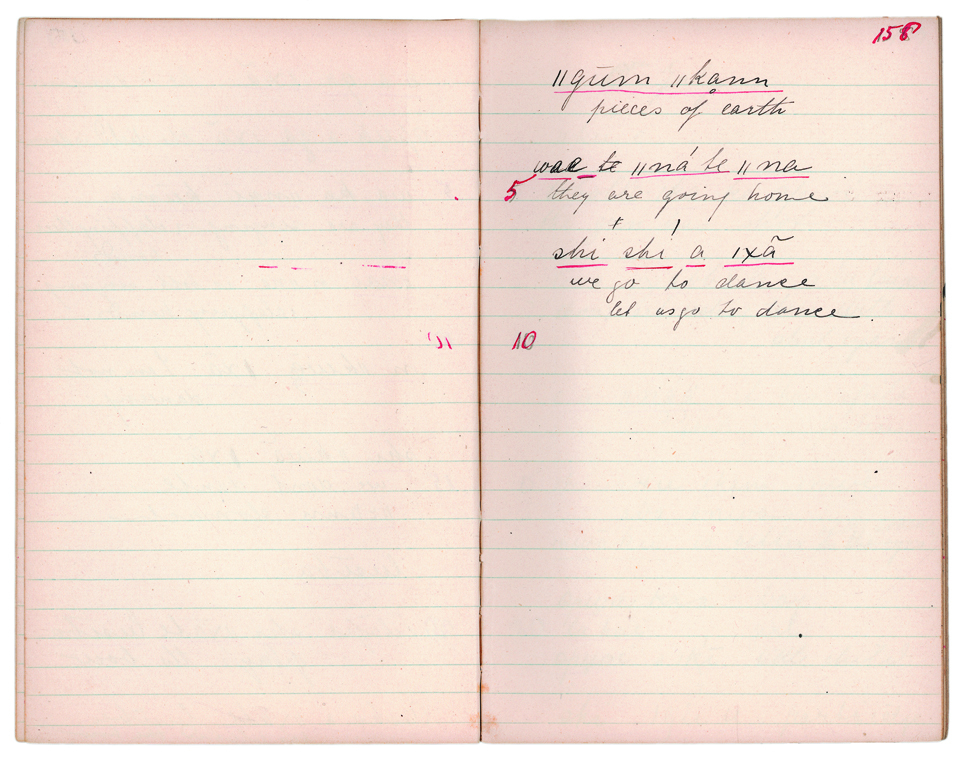 158
ǁgūm ǁkḁnn
pieces of earth
wae te ǁná te ǁna
5 they are going home
shi shi a ǀxã
we go to dance
let us go to dance.
10